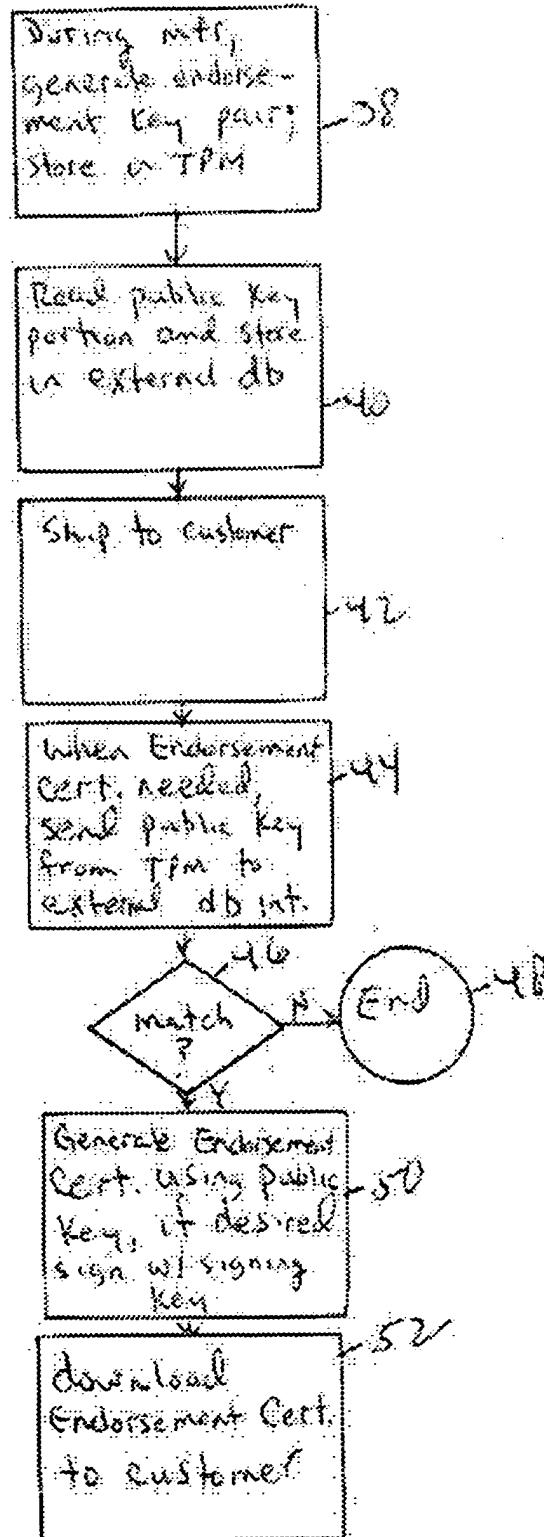 During mfr,
generate endorse-
ment key pair;
store in TPM
38
Read public key
portion and store
in external db
40
Ship to customer
42
When Endorsement
Cert. needed,
send public key
from TPM to
external db int.
44
46
match
?
N
End
48
Y
Generate Endorsement
Cert. using public
key, if desired
sign w/ signing
key
50
download
Endorsement Cert.
to customer
52